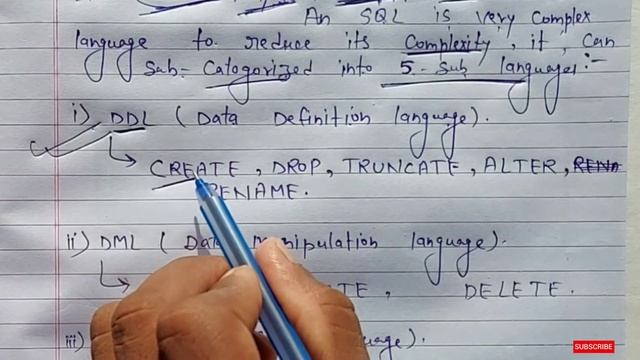 An SQL is very complex
language to reduce its Complexity, it, can
Sub-Catogorized into 5-Sub languages:-
i) DDL (Data Definition language).
CREATE, DROP, TRUNCATE, ALTER,
RENAME.
ii) DML (Data Manipulation language).
DELETE.
iii) language).
SUBSCRIBE